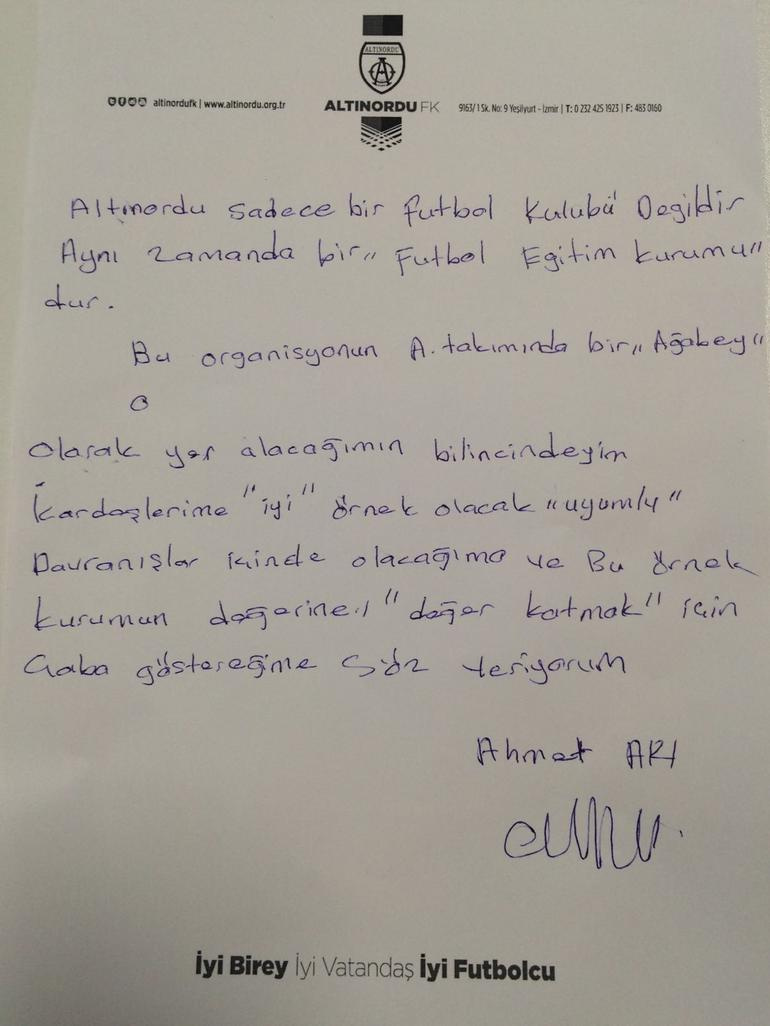 ALTINORDU
altinordufk | www.altinordu.org.tr
ALTINORDU FK
9163/1 Sk. No: 9 Yeşilyurt - İzmir | T: 0 232 425 1923 | F: 483 0160
Altınordu sadece bir futbol Kulubü Degildir
Aynı zamanda bir „ Futbol Egitim kurumu"
dur.
Bu organisyonun A. takımında bir „ Ağabey"
o
olarak yer alacağımın bilincindeyim
kardeşlerime "iyi" örnek olacak "uyumly"
Davranışlar içinde olacağıma ve Bu örnek
kurumun değerine "değer katmak" için
Gaba göstereğime söz veriyorum
Ahmet ARI
İyi Birey İyi Vatandaş İyi Futbolcu